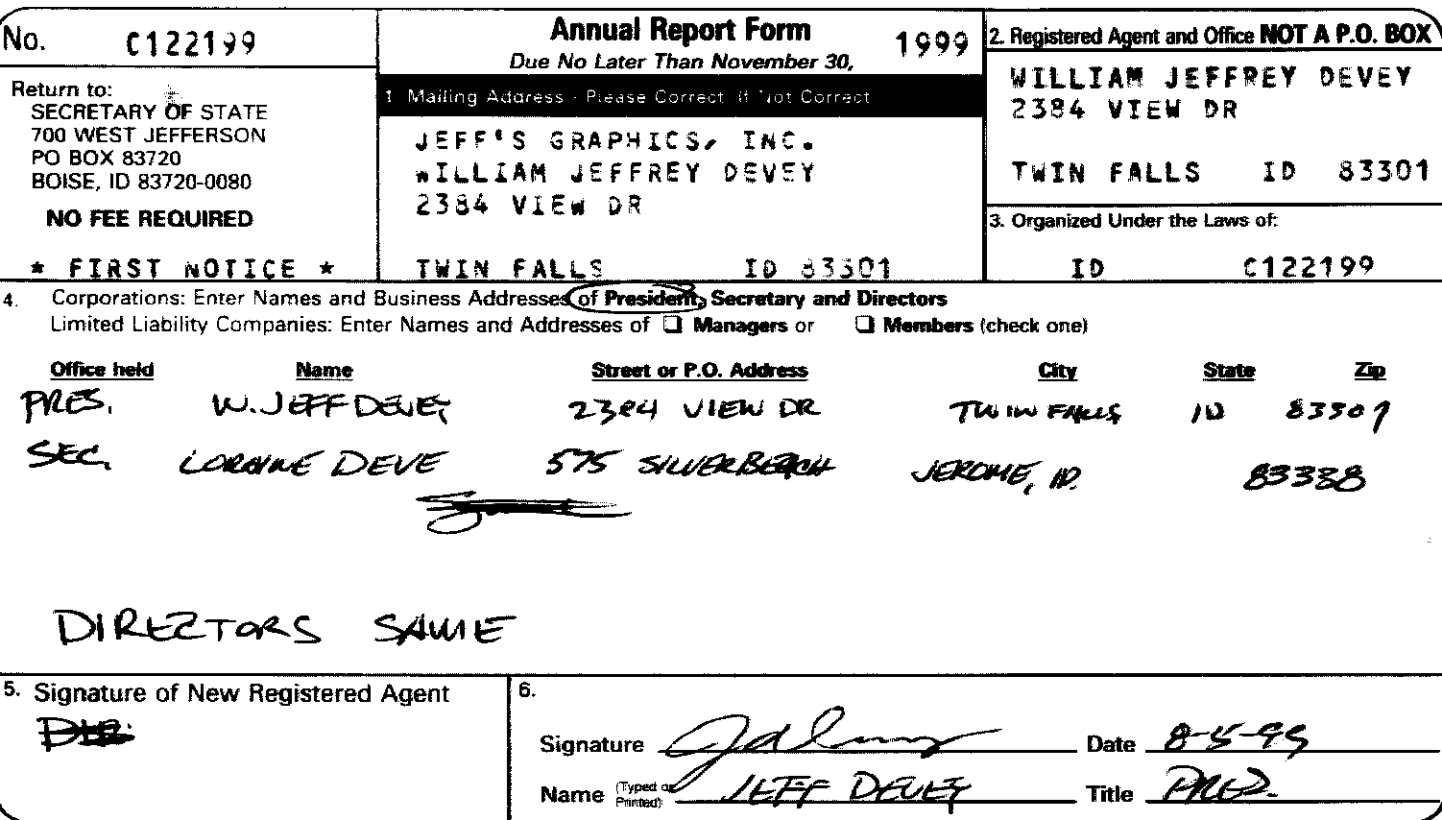 No. C122199
Return to:
SECRETARY OF STATE
700 WEST JEFFERSON
PO BOX 83720
BOISE, ID 83720-0080
NO FEE REQUIRED
* FIRST NOTICE *
Annual Report Form 1999
Due No Later Than November 30,
1 Mailing Address - Please Correct If Not Correct
JEFF'S GRAPHICS, INC.
WILLIAM JEFFREY DEVEY
2384 VIEW DR
TWIN FALLS ID 83301
2. Registered Agent and Office NOT A P.O. BOX
WILLIAM JEFFREY DEVEY
2384 VIEW DR
TWIN FALLS ID 83301
3. Organized Under the Laws of:
ID C122199
4. Corporations: Enter Names and Business Addresses of President, Secretary and Directors
Limited Liability Companies: Enter Names and Addresses of ☐ Managers or ☐ Members (check one)
Office held Name Street or P.O. Address City State Zip
PRES. W. JEFF DEVEY 2384 VIEW DR TWIN FALLS ID 83301
SEC. LORAINE DEVE 575 SILVERBEACH JEROME, ID. 83338
DIRECTORS SAME
5. Signature of New Registered Agent
6.
Signature Date 8-5-99
Name (Typed or Printed) JEFF DEVEY Title PRES.